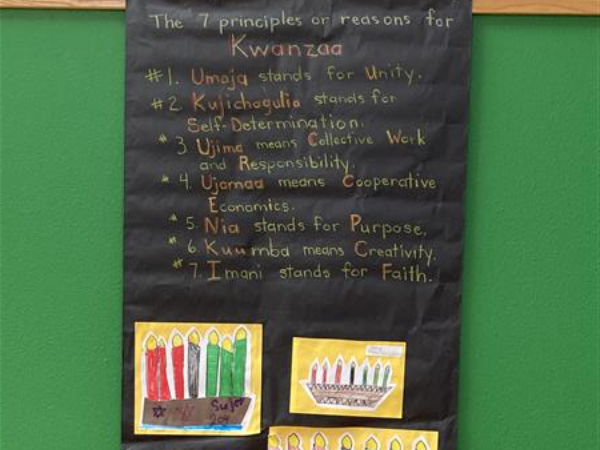 The 7 principles or reasons for
Kwanzaa
#1. Umoja stands for Unity.
#2 Kujichagulia stands for
Self-Determination.
* 3 Ujima means Collective Work
and Responsibility.
* 4. Ujamaa means Cooperative
Economics.
* 5. Nia stands for Purpose.
* 6. Kuumba means Creativity.
* 7. Imani stands for Faith.